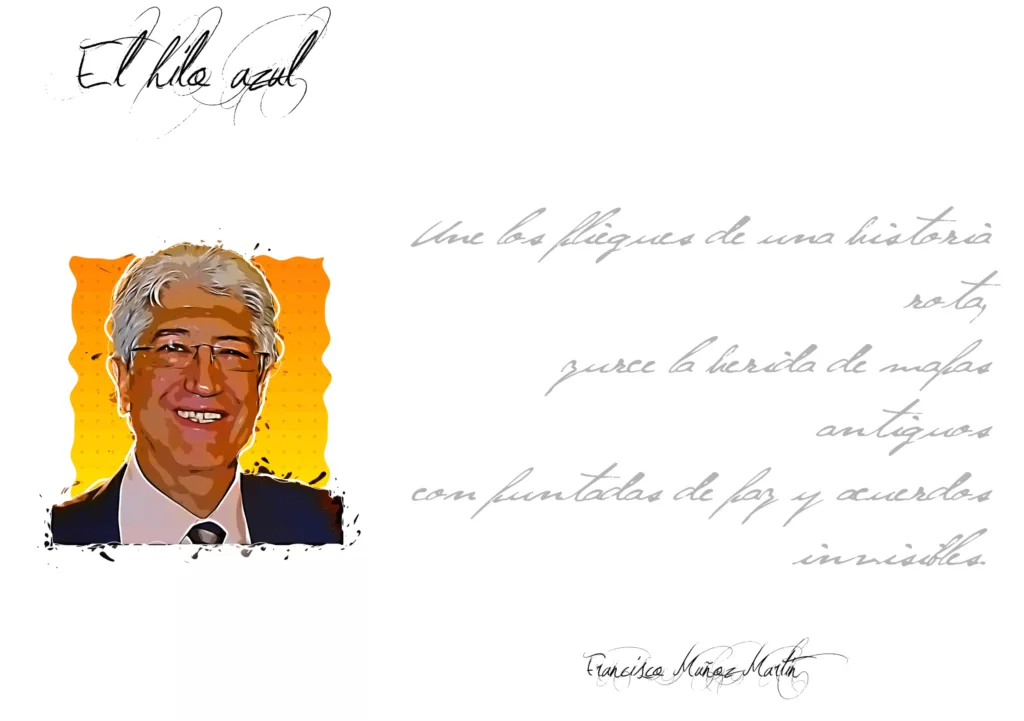 El hilo azul
Une los pliegues de una historia
rota,
zurce la herida de mapas
antiguos
con puntadas de paz y acuerdos
invisibles.
Francisco Muñoz Martín